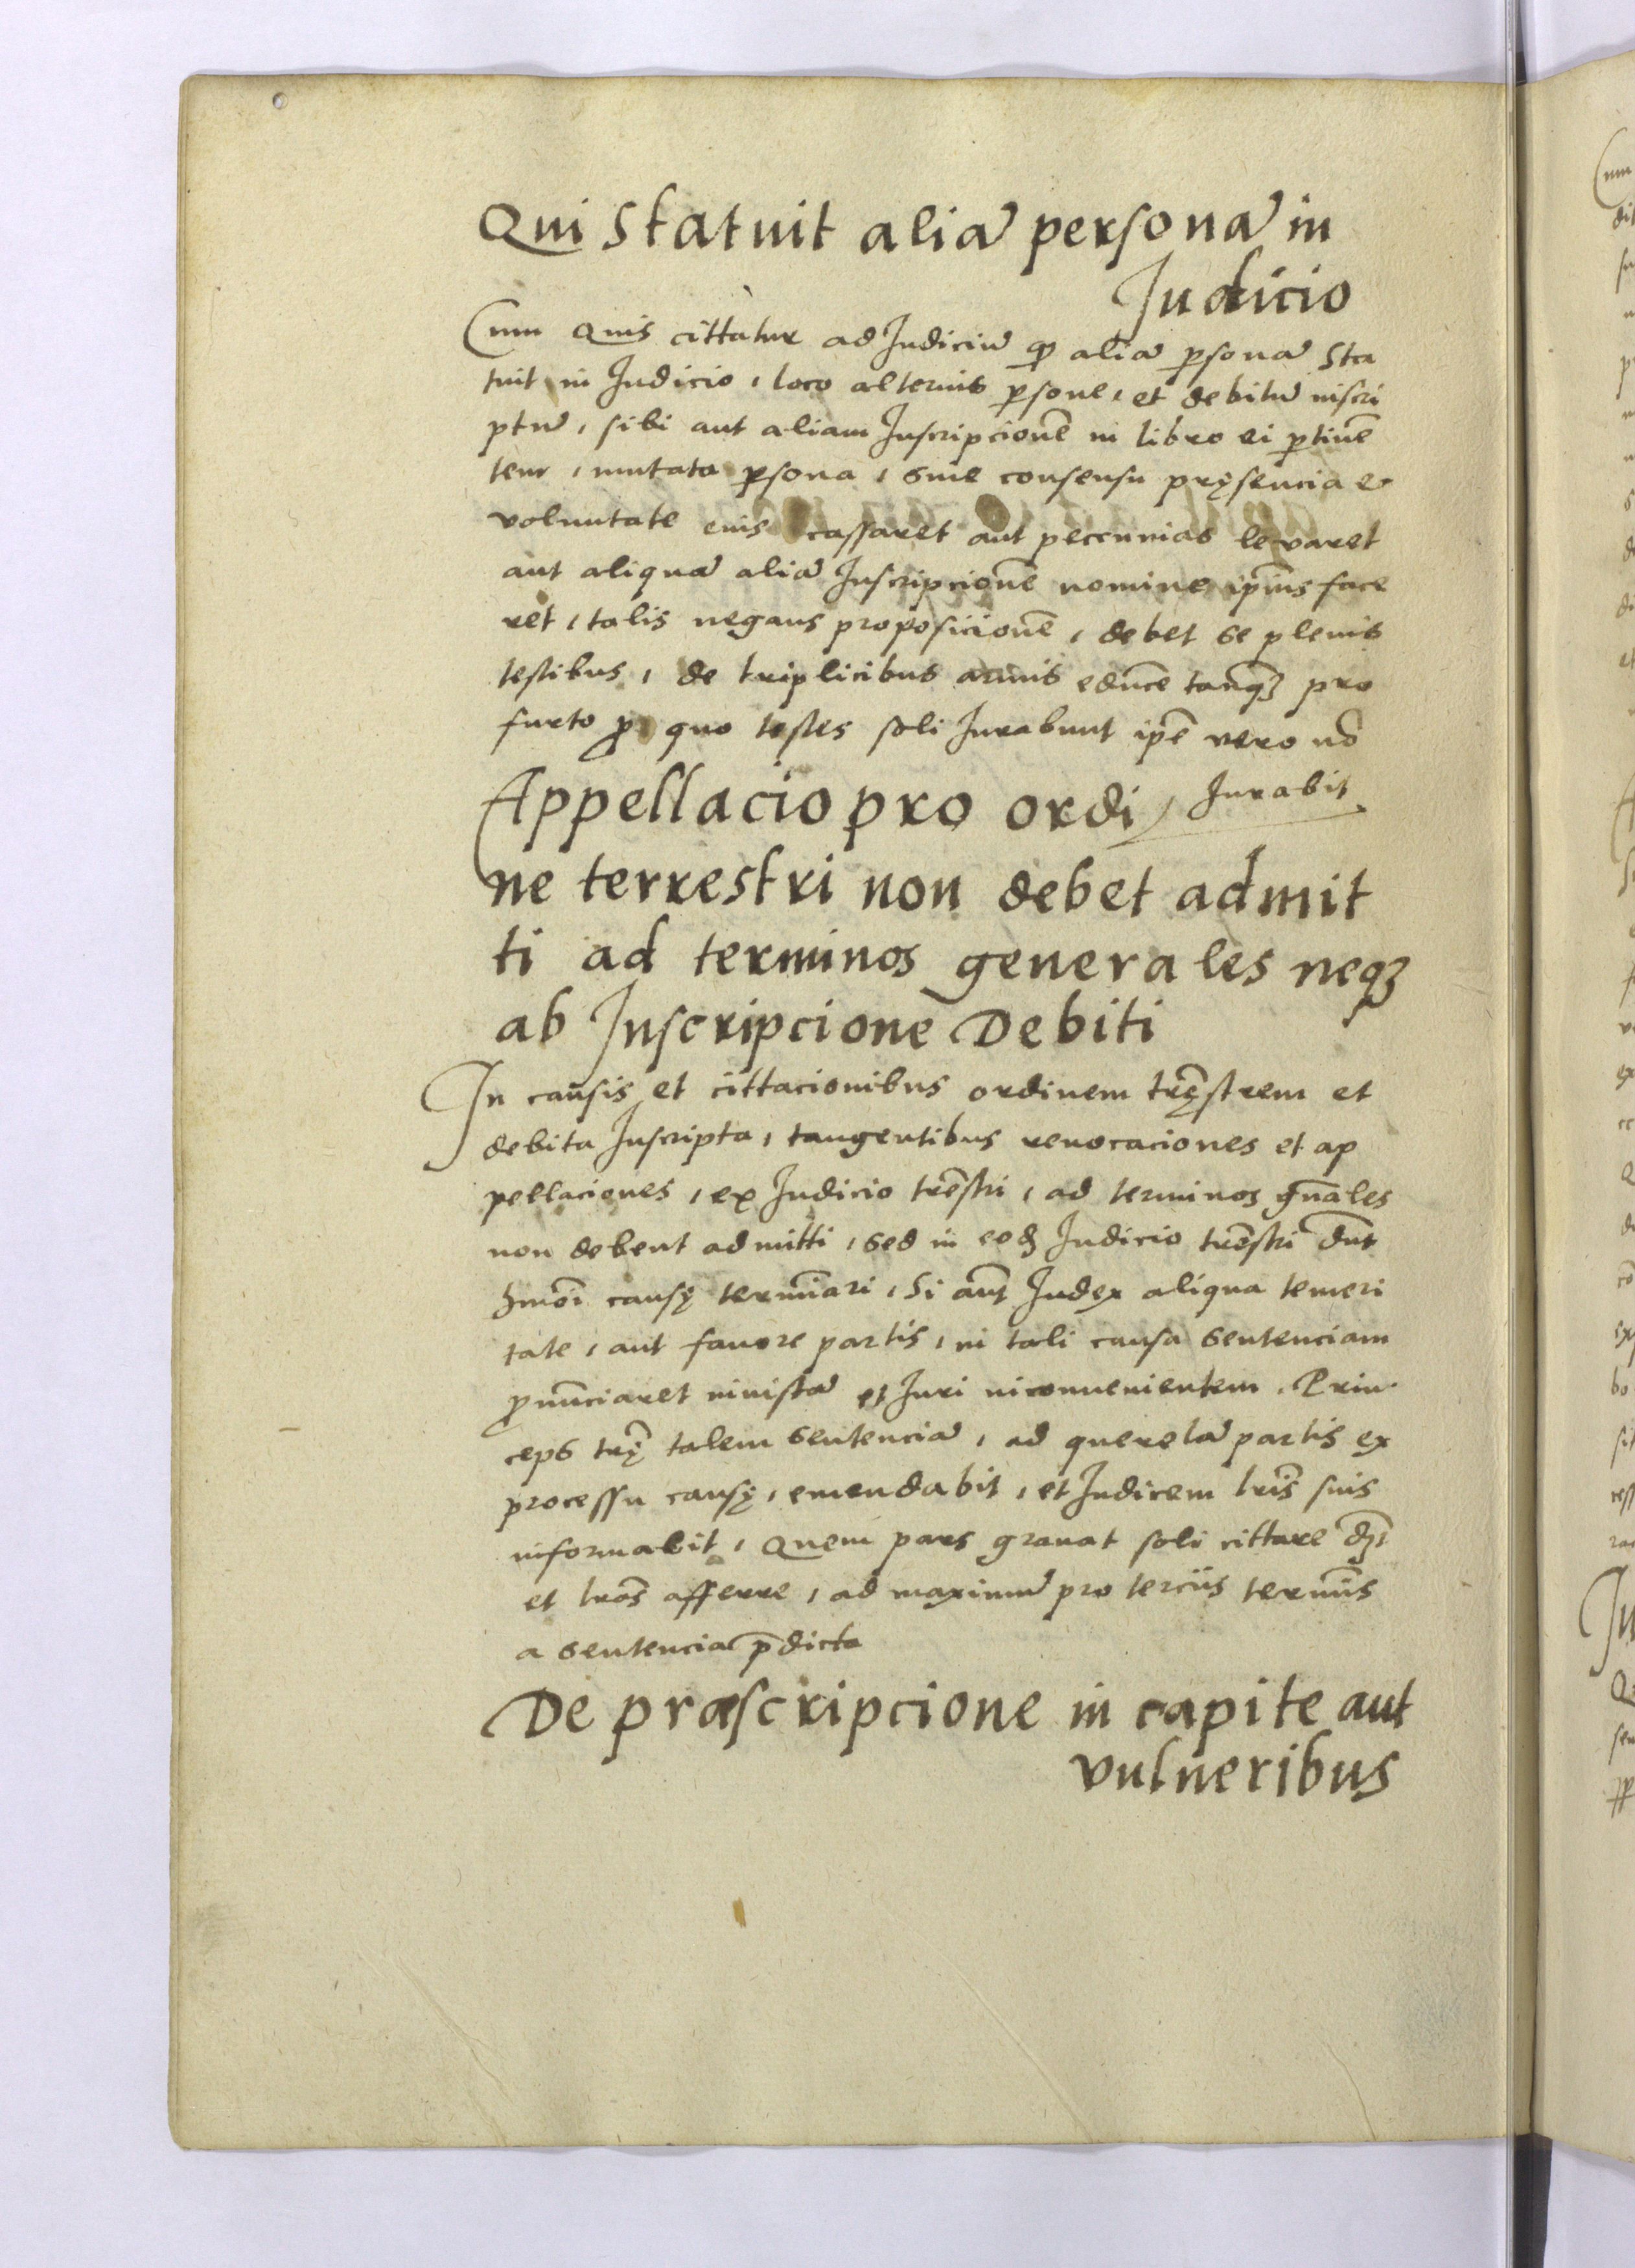 Qui Statuit aliā personā in
Judicio
Cum Quis cittatur ad Judiciū qꝫ aliā ꝑsonā Sta
tuit in Judicio, loco alterius ꝑsone, et debitū inscri
ptū, sibi aut aliam Inscripcionē in libro ei ꝑtinē
tem, mutata ꝑsona, sine consensu pręsencia et
voluntate eius cassaret aut peccunias levaret
aut aliquā aliā Inscripcionē nomine ip̄ius face
ret, talis negans proposicionē, debet se plenis
testibus, de triplicibus armis educē tanqꝫ pro
furto ꝓ quo testes soli Jurabunt ip̄e vero nō
Jurabit
Appellacio pro ordi
ne terrestri non debet admit
ti ad terminos generales neqꝫ
ab Inscripcione Debiti
In causis et cittacionibus ordinem trę̄strem et
debita Inscripta, tangentibus revocaciones et ap
pellaciones, ex Judicio trēstri, ad terminos gn̄ales
non debent admitti, sed in eodꝫ Judicio trēstri dn̄t
hmōi causę termīari, Si aūt Judex aliqua temeri
tate, aut favore partis, in tali causa sentenciam
ꝓnūnciaret iniustā et Juri inconvenientem. Prin
ceps trę̄ talem sentenciā, ad querelā partis ex
processu causę, emendabit, et Judicem lr̄is suis
informabit, Quem pars gravat soli cittare dꝫ
et lrās afferre, ad maximū pro terciis termīis
a sentencia p̄dicta
De præscripcione in capite aut
vulneribus